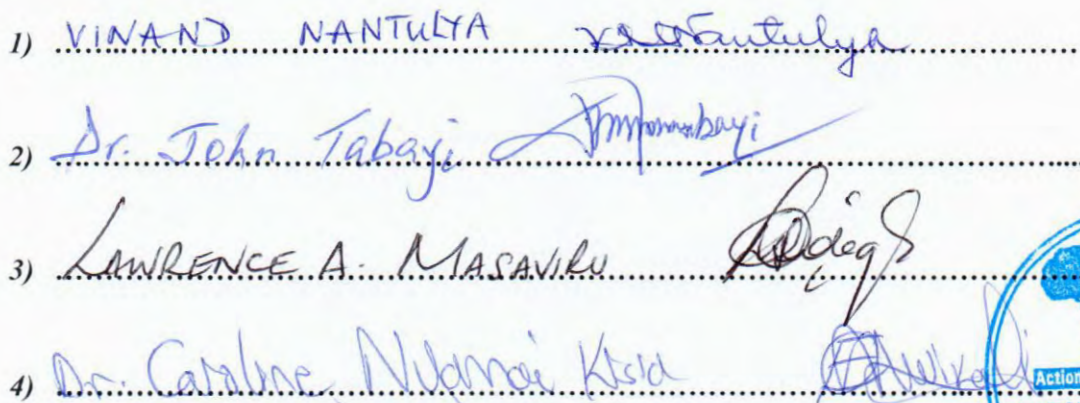 1) VINAND NANTULYA Nantulya
2) Dr. John Tabayi
3) LAWRENCE A. MASAVIRU
4) Dr. Caroline Nyamai Kisia
Action